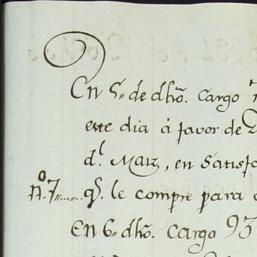 En 5,, de dho. cargo
este dia á favor de
d.l Maiz, en Satisf
n.o 7....... q.e le compre para
En 6,, dho. cargo 93